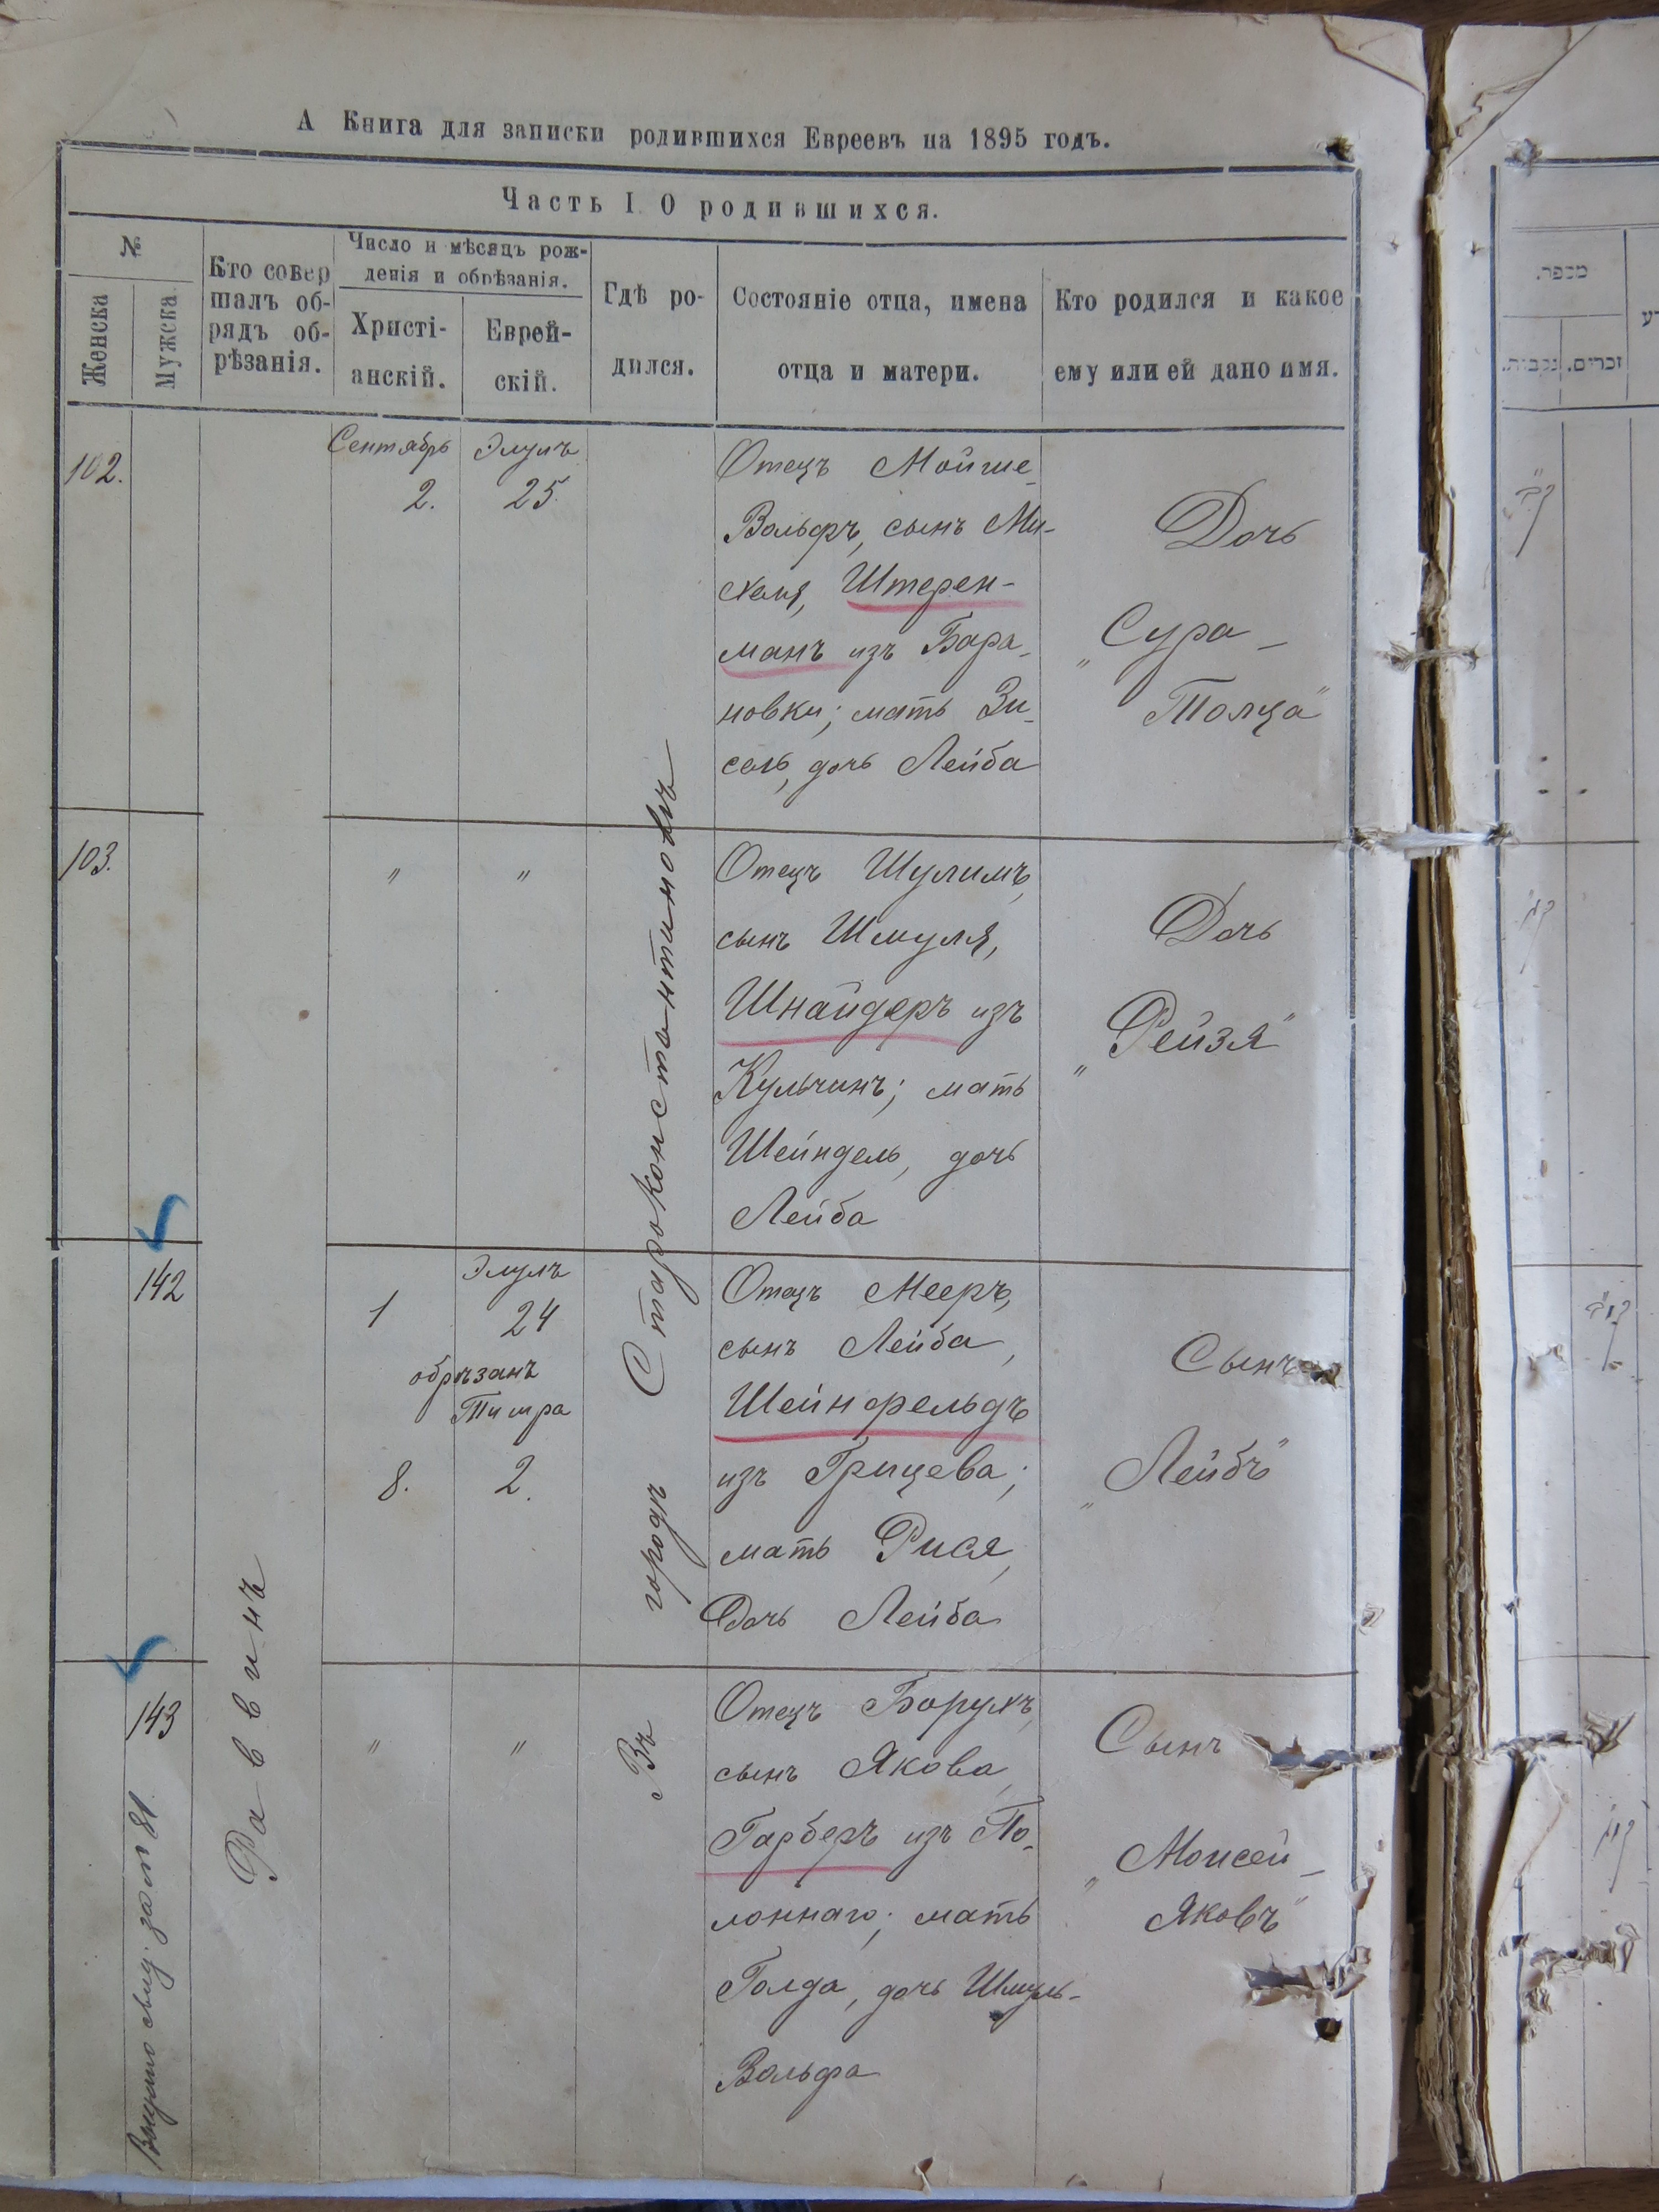 А Книга для записки родившихся Евреевъ на 1895 годъ.
Часть I О родившихся.
№
Женска
Мужска
Кто совер
шалъ об-
рядъ об-
рѣзанія.
Число и мѣсяцъ рож-
денія и обрѣзанія.
Христі-
анскій.
Еврей-
скій.
Гдѣ ро-
дился.
Состояніе отца, имена
отца и матери.
Кто родился и какое
ему или ей дано имя.
102.
Сентябрь
2.
Элулъ
25
Отецъ Мойше
Вольфъ, сынъ Ми-
хеля, Штерен-
манъ изъ Бара-
новки; мать Зи-
сель, дочь Лейба
Дочь
„Сура-
Толца"
103.
"
"
Отецъ Шулимъ,
сынъ Шмуля,
Шнайдеръ изъ
Кульчинъ; мать
Шейндель, дочь
Лейба
Дочь
„Рейзя"
142
1
Элулъ
24
обрѣзанъ
Тишра
8.
2.
Отецъ Мееръ,
сынъ Лейба,
Шейнфельдъ
изъ Грицева;
мать Рися,
Дочь Лейба
Сынъ
„Лейбъ"
143
"
"
Отецъ Борухъ,
сынъ Якова,
Гарберъ изъ По-
лоннаго; мать
Голда, дочь Шмуль-
Вольфа
Сынъ
„Моисей-
Яковъ"
Раввинъ
Въ городѣ Староконстантиновъ
свид. за №81.
מספר.
נקבות.
זכרים.